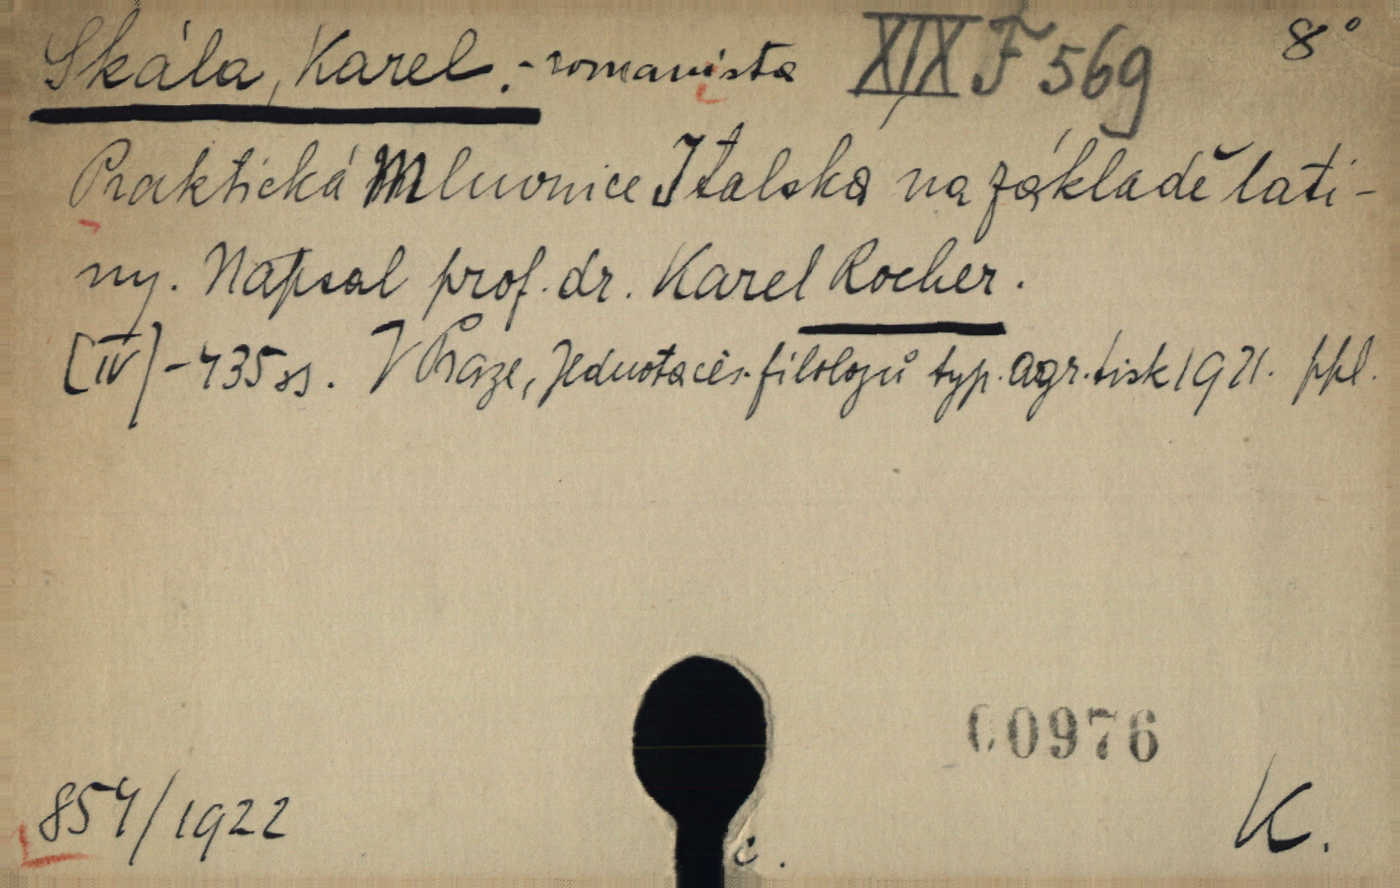 Skála, Karel. - romanista XIX F 569 8°
Praktická Mluvnice Italská na základě lati-
ny. Napsal prof. dr. Karel Rocher.
[IV] - 435 ss. V Praze, Jednota čes. filologů typ. agr. tisk 1921. ppl.
00976
854/1922
c.
K.